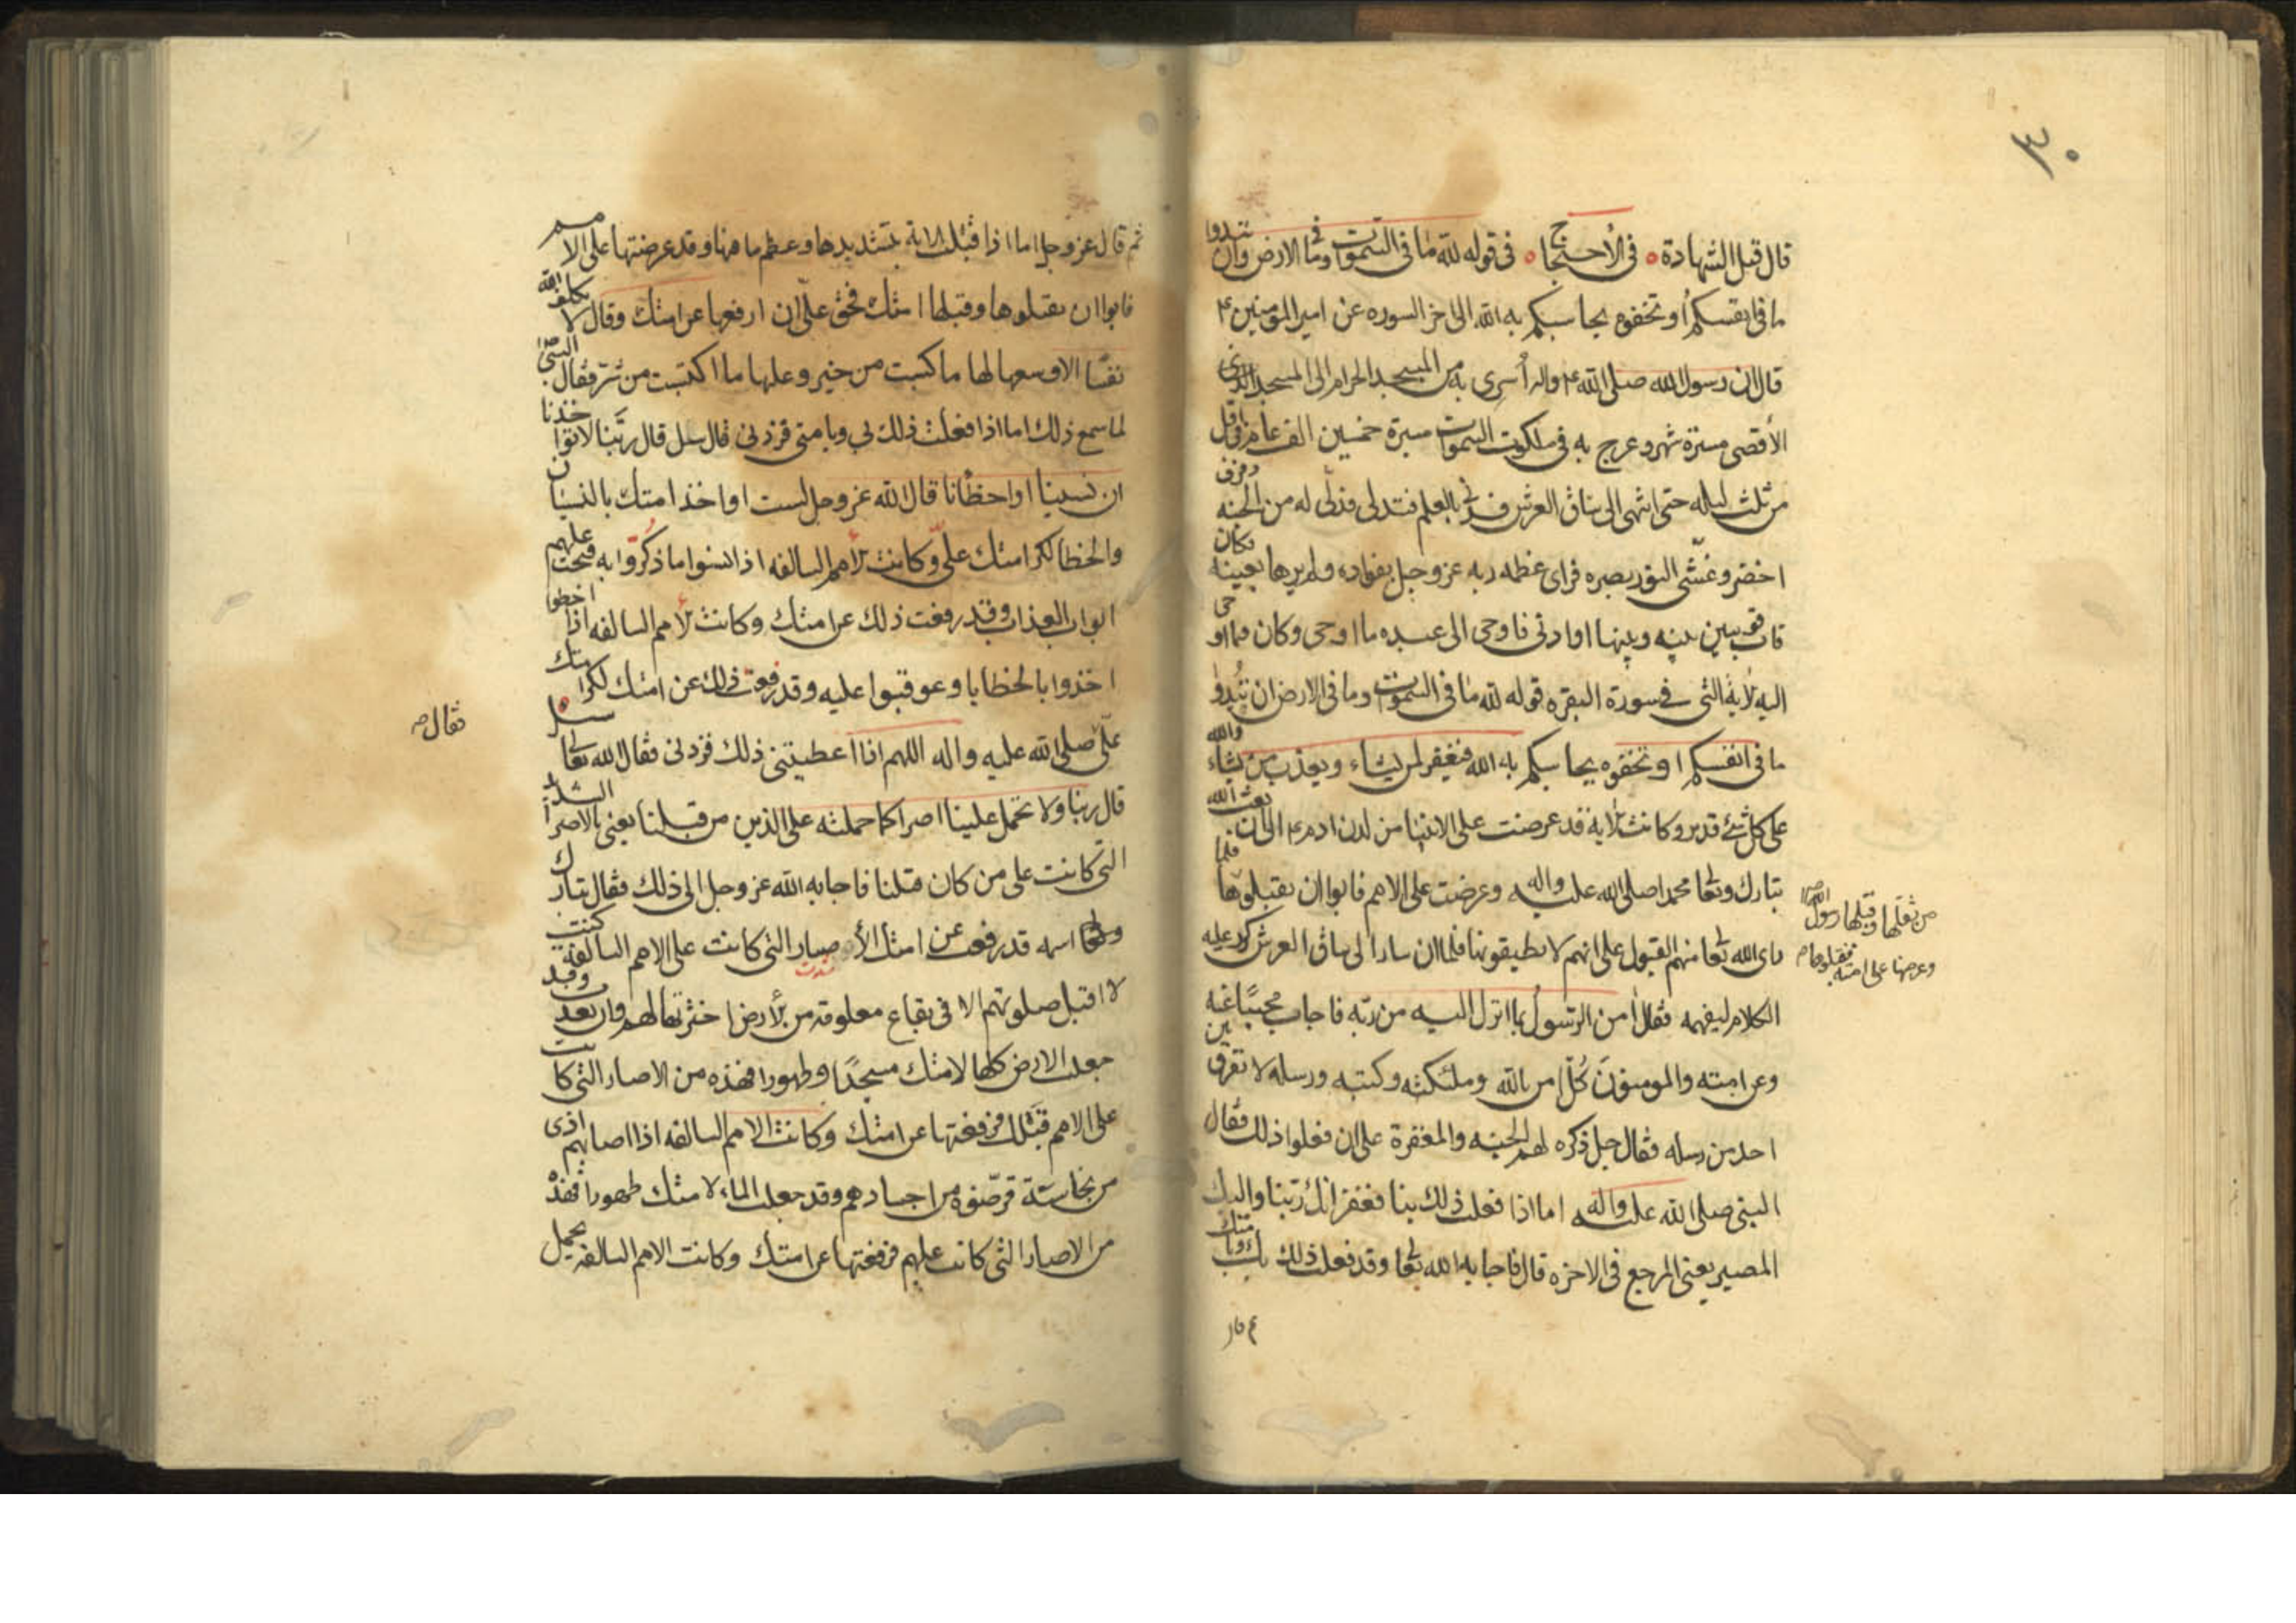 ٤٠
قال قبل الشهادة ٥ في الأحتجاج ٥ في قوله لله ما في السموات وما في الارض وان تبدوا
ما في انفسكم أو تخفوه يحاسبكم به الله الى اخر السوره عن امير المومنين ع
قال ان رسول الله صلى الله ع واله أسرى به من المسجد الحرام الى المسجد
الأقصى مسيرة شهر وعرج به في ملكوت السموات مسيرة خمسين الف عام في اقل
من ثلث ليله حتى انتهى الى ساق العرش فدنى بالعلم فتدلى فدلى له من الجنه رفرف
اخضر وغشى النور بصره فراى عظمه ربه عز وجل بفواده ولم يرها بعينه فكان
قاب قوسين بينه وبينها او ادنى فاوحى الى عبده ما اوحى وكان فيما اوحى
اليه الاية التي في سورة البقره قوله لله ما في السموت وما في الارض ان تُبدوا
ما في انفسكم او تخفوه يحاسبكم به الله فيغفر لمن يشاء ويعذب من يشاء والله
على كل شئ قدير وكانت الاية قد عرضت على الانبيا من لدن ادم ع الى ان بعث الله
تبارك وتعا محمدا صلى الله عليه واله وعرضت على الامم فابوا ان يقبلوها
من ثقلها وقبلها رسول الله ص
وعرضها على امته فقبلوها
فلما
راى الله تعا منهم القبول على انهم لا يطيقونها فلما ان سار الى ساق العرش كرر عليه
الكلام ليفهمه فقال أمن الرسول بما انزل اليه من ربه فاجاب مجيبًا عنه
وعن امته والمومنون كُلّ امن بالله وملئكته وكتبه ورسله لا نفرق بين
احد من رسله فقال جل ذكره لهم الجنه والمغفرة على ان فعلوا ذلك فقال
النبي صلى الله عليه واله اما اذا فعلت ذلك بنا فغفرانك ربنا واليك
المصير يعني المرجع في الاخره قال فاجابه الله تعا وقد فعلت ذلك بك وبامتك
ثم قال عز وجل اما اذا قبلت الاية بتشديدها وعظم ما فيها وقد عرضتها على الامم
فابوا ان يقبلوها وقبلها امتك فحق علىّ ان ارفعها عن امتك وقال لا يكلف الله
نفسًا الا وسعها لها ما كسبت من خير وعليها ما اكتسبت من شر فقال النبى ص
لما سمع ذلك اما اذا فعلت ذلك بي وبامتى فزدنى قال سل قال ربَّنا لا تواخذنا
ان نسينا او اخطأنا قال الله عز وجل لست اواخذ امتك بالنسيان
والخطا لكرامتك علىّ وكانت الامم السالفه اذا نسوا ما ذُكّروا به فتحت عليهم
ابواب العذاب وقد رفعت ذلك عن امتك وكانت الامم السالفه اذا اخطوا
اخذوا بالخطايا وعوقبوا عليه وقد رفعت ذلك عن امتك لكرامتك
علىّ
فقال ص
صلى الله عليه واله اللهم اذا اعطيتنى ذلك فزدنى فقال الله تعا سل
قال ربنا ولا تحمل علينا اصرا كما حملته على الذين من قبلنا يعني بالاصر الشدايد
التي كانت على من كان قبلنا فاجابه الله عز وجل الى ذلك فقال تبارك
وتعا اسمه قد رفعت عن امتك الأصار التي كانت على الامم السالفة كنت
لا اقبل صلوتهم الا في بقاع معلومة من الأرض اخترتها لهم وان بعدت وقد
جعلت الارض كلها لامتك مسجدًا وطهورا فهذه من الاصار التي كانت
على الامم قبلك فرفعتها عن امتك وكانت الامم السالفه اذا اصابهم اذى
من نجاسة قرضوه من اجسادهم وقد جعلت الماء لامتك طهورا فهذه
من الاصار التي كانت عليهم فرفعتها عن امتك وكانت الامم السالفه تحمل